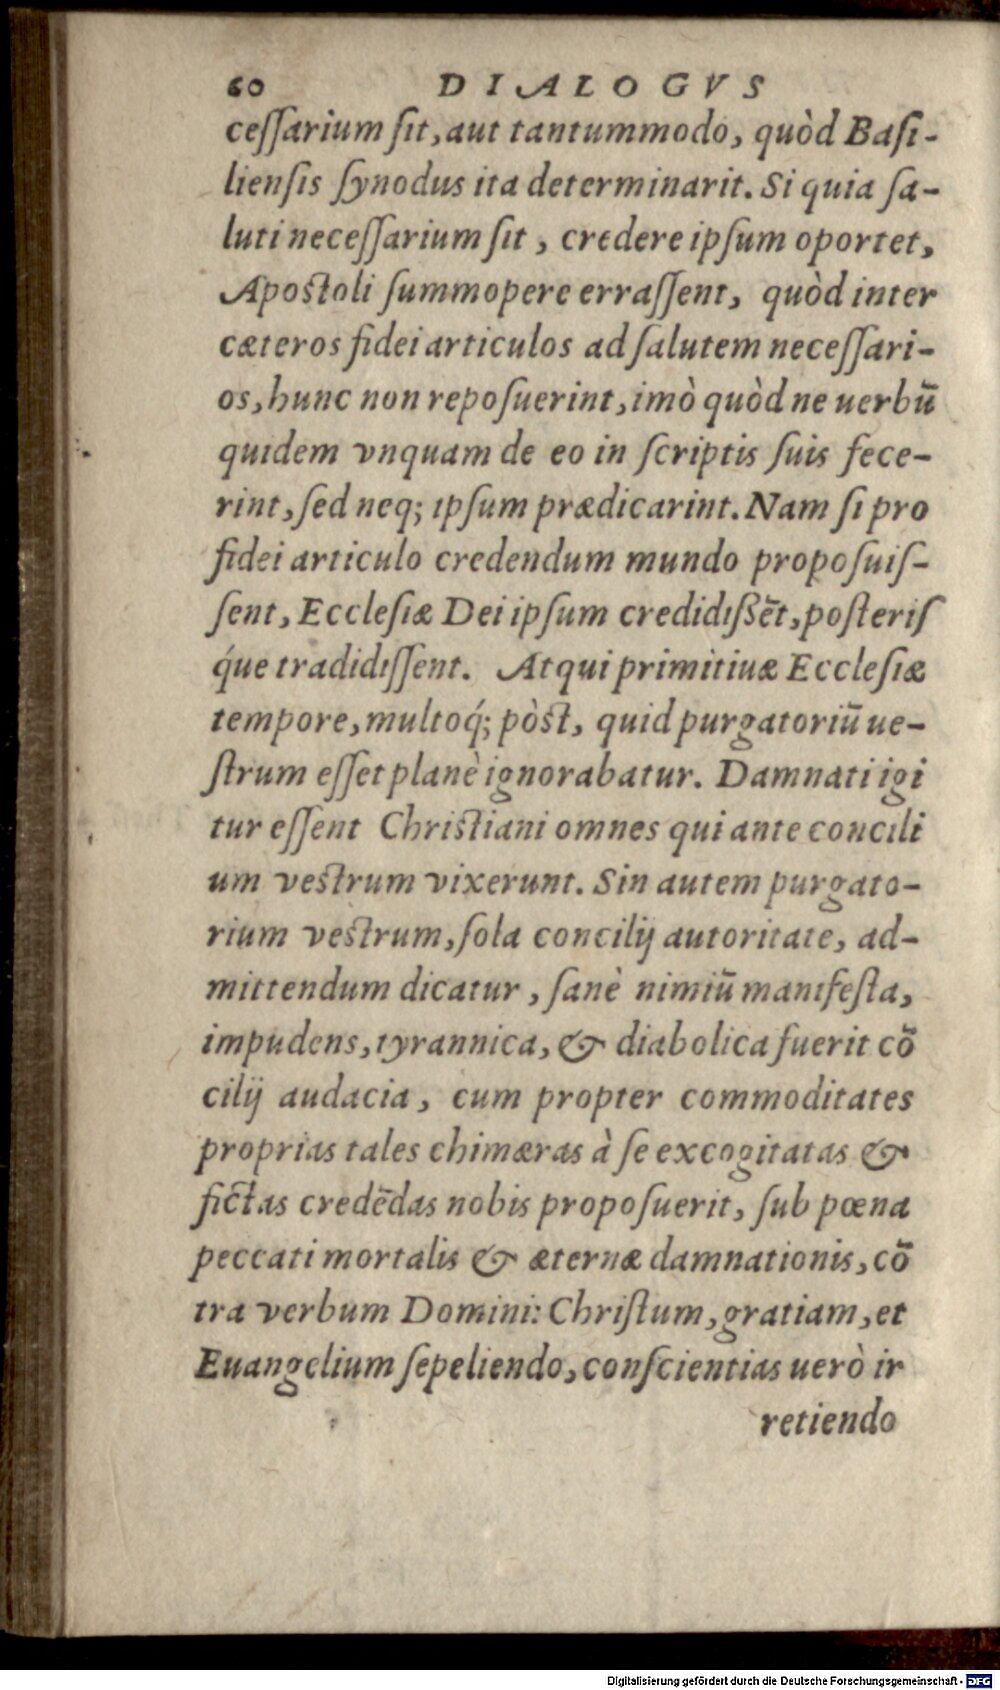 60 DIALOGVS
ceſſarium ſit, aut tantummodo, quòd Baſi-
lienſis ſynodus ita determinarit. Si quia ſa-
luti neceſſarium ſit, credere ipſum oportet,
Apoſtoli ſummopere erraſſent, quòd inter
cæteros fidei articulos ad ſalutem neceſſari-
os, hunc non repoſuerint, imò quòd ne uerbū
quidem vnquam de eo in ſcriptis ſuis fece-
rint, ſed neq; ipſum prædicarint. Nam ſi pro
fidei articulo credendum mundo propoſuiſ-
ſent, Eccleſiæ Dei ipſum credidißēt, poſteriſ
q́ue tradidiſſent. Atqui primitiuæ Eccleſiæ
tempore, multoq́; pòſt, quid purgatoriū ue-
ſtrum eſſet planè ignorabatur. Damnati igi
tur eſſent Chriſtiani omnes qui ante concili
um veſtrum vixerunt. Sin autem purgato-
rium veſtrum, ſola concilij autoritate, ad-
mittendum dicatur, ſanè nimiū manifeſta,
impudens, tyrannica, & diabolica fuerit cō
cilij audacia, cum propter commoditates
proprias tales chimæras à ſe excogitatas &
fictas credēdas nobis propoſuerit, ſub pœna
peccati mortalis & æternæ damnationis, cō
tra verbum Domini: Chriſtum, gratiam, et
Euangelium ſepeliendo, conſcientias uerò ir
retiendo
Digitalisierung gefördert durch die Deutsche Forschungsgemeinschaft - DFG